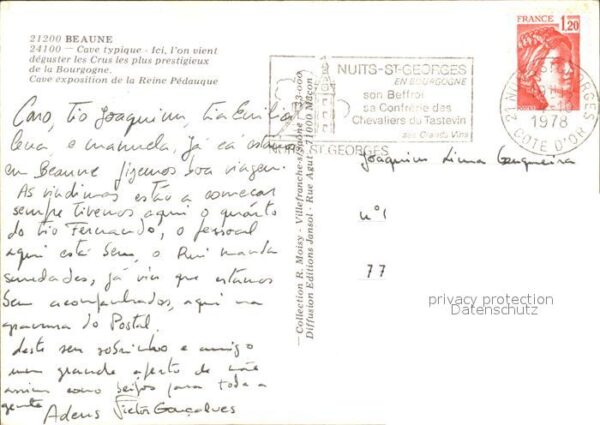 21200 BEAUNE
24100 — Cave typique - Ici, l'on vient
déguster les Crus les plus prestigieux
de la Bourgogne.
Cave exposition de la Reine Pédauque
Caro, tio Joaquim, tia Emilia
lena, e manuela, já cá estamos
em Beaune fizemos boa viagem.
As vindimas estão a começar
sempre tivemos aqui o quarto
do tio Fernando, o pessoal
aqui está bem, o Rui manda
saudades, já vês que estamos
bem acompanhados, aqui na
gravura do Postal.
deste seu sobrinho e amigo
um grande aperto de mão
assim como beijos para toda a
gente Adeus Victor Gonçalves
—Collection R. Moisy - Villefranche-s/Saône - 73-000
Diffusion Editions Jansol - Rue Agut - 71000 Mâcon
NUITS-ST-GEORGES
EN BOURGOGNE
son Beffroi
sa Confrérie des
Chevaliers du Tastevin
ses Grands Vins
NUITS-ST-GEORGES
FRANCE
1,20
1978
COTE D'OR
Joaquim Lima
nº 1
77
privacy protection
Datenschutz